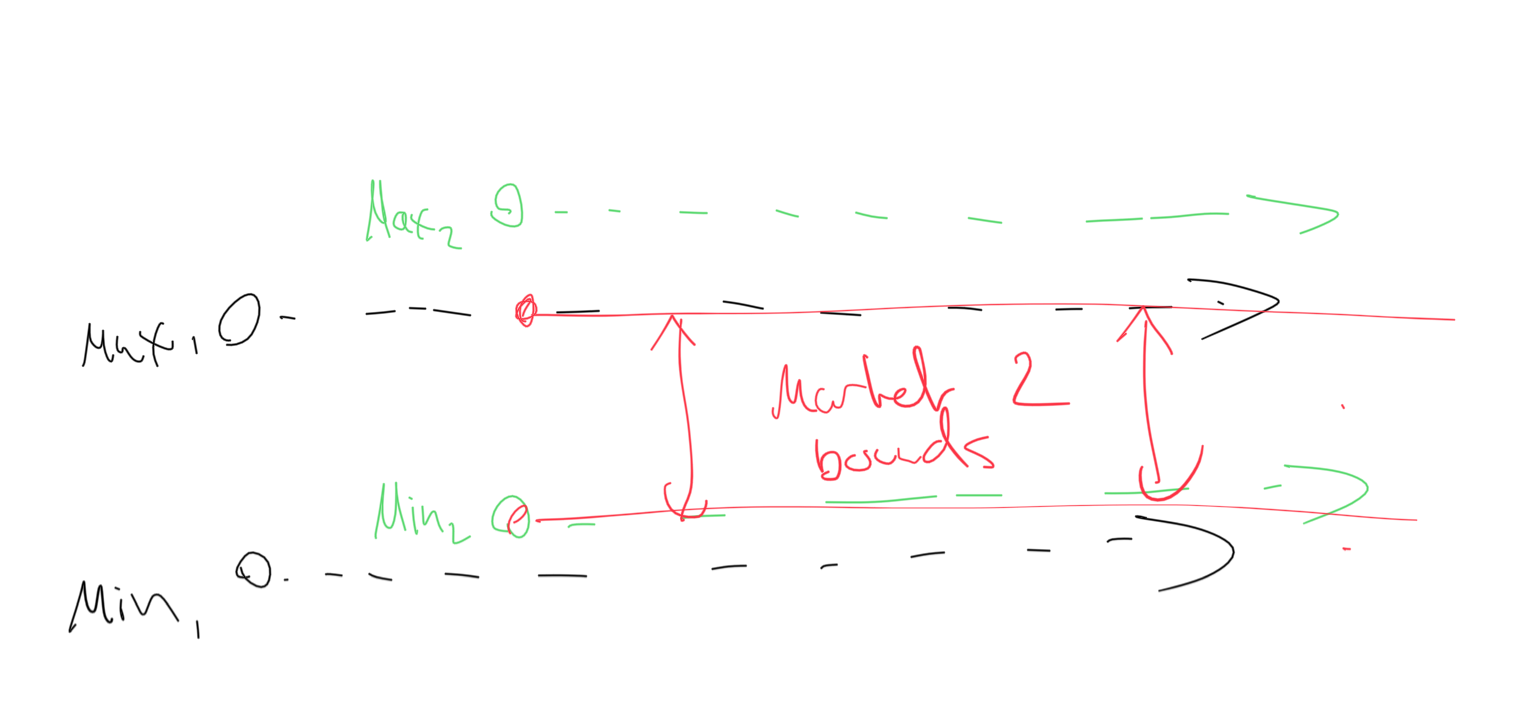 Max₂
Max₁
Market 2
bounds
Min₂
Min₁